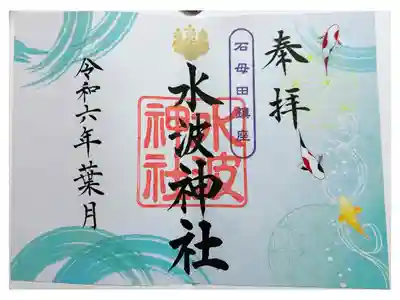 奉拝
石母田鎮座
水波神社
水波
神社
令和六年葉月